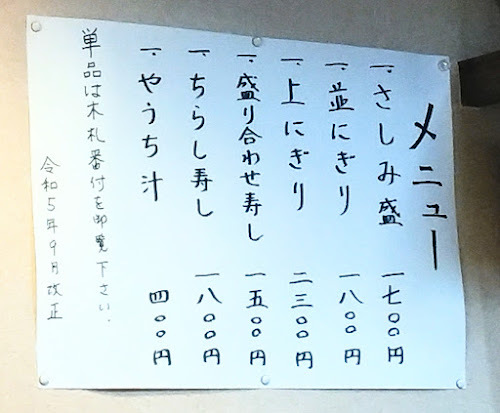 メニュー
一、さしみ盛 一七〇〇円
一、並にぎり 一八〇〇円
一、上にぎり 二三〇〇円
一、盛り合わせ寿し 一五〇〇円
一、ちらし寿し 一八〇〇円
一、やうち汁 四〇〇円
単品は木札番付を御覧下さい.
令和5年9月改正